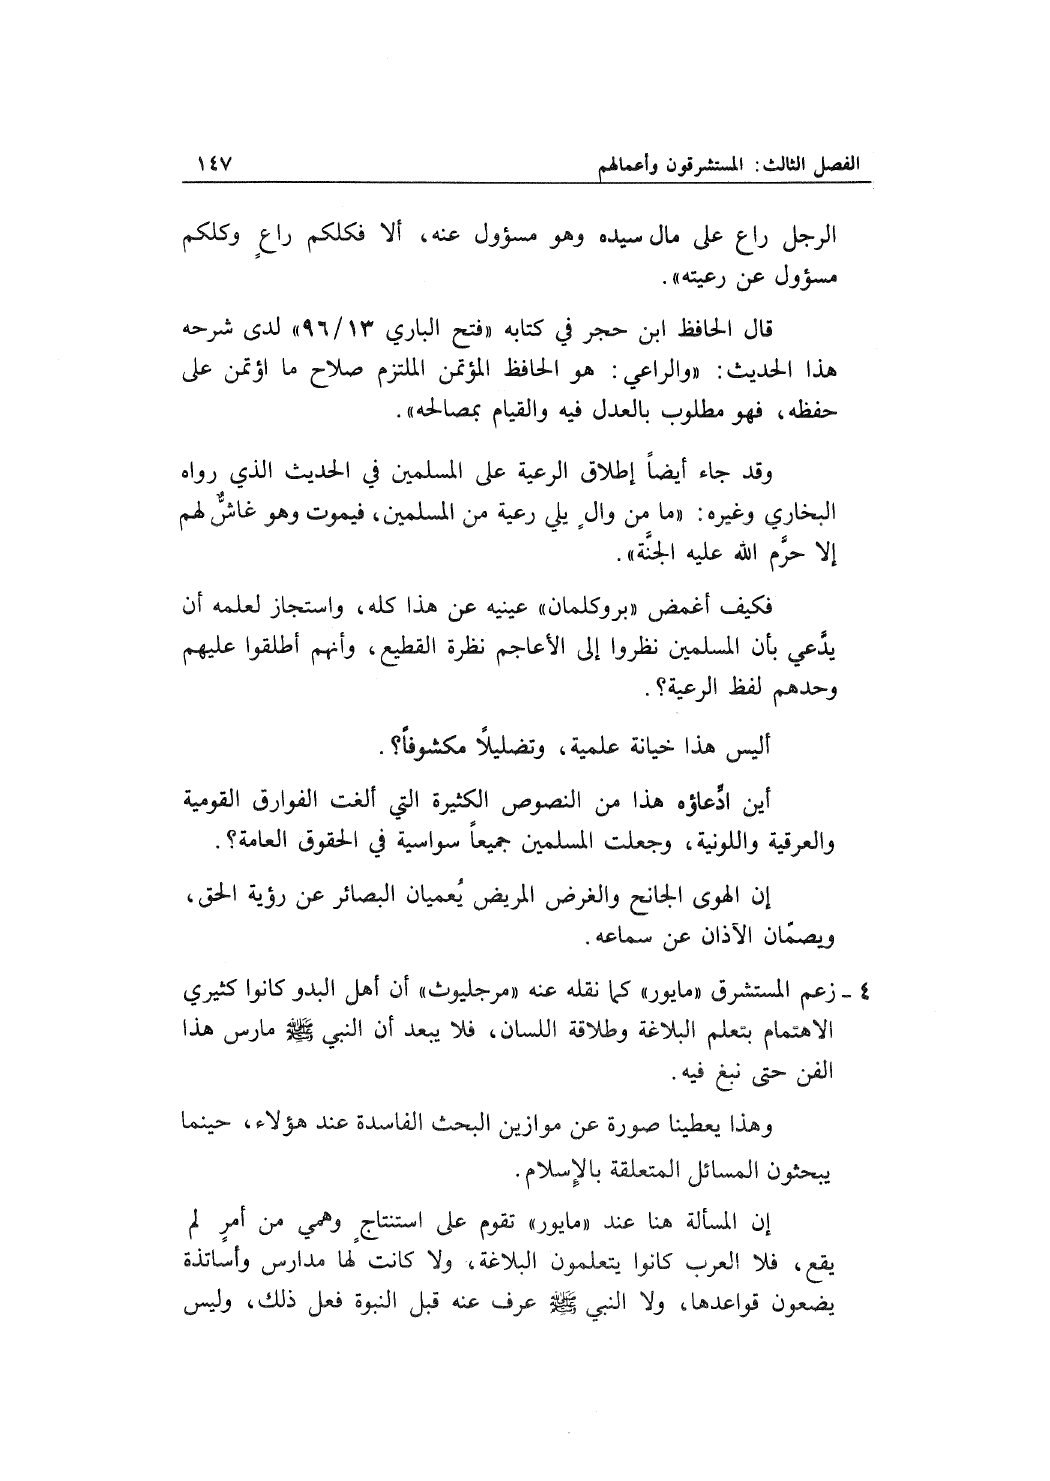 الفصل الثالث: المستشرقون وأعمالهم ١٤٧
الرجل راع على مال سيده وهو مسؤول عنه، ألا فكلكم راعٍ وكلكم
مسؤول عن رعيته».
قال الحافظ ابن حجر في كتابه «فتح الباري ٩٦/١٣» لدى شرحه
هذا الحديث: «والراعي: هو الحافظ المؤتمن الملتزم صلاح ما اؤتمن على
حفظه، فهو مطلوب بالعدل فيه والقيام بمصالحه».
وقد جاء أيضاً إطلاق الرعية على المسلمين في الحديث الذي رواه
البخاري وغيره: «ما من والٍ يلي رعية من المسلمين، فيموت وهو غاشٌّ لهم
إلا حرَّم الله عليه الجنَّة».
فكيف أغمض «بروكلمان» عينيه عن هذا كله، واستجاز لعلمه أن
يدَّعي بأن المسلمين نظروا إلى الأعاجم نظرة القطيع، وأنهم أطلقوا عليهم
وحدهم لفظ الرعية؟.
أليس هذا خيانة علمية، وتضليلًا مكشوفاً؟.
أين ادِّعاؤه هذا من النصوص الكثيرة التي ألغت الفوارق القومية
والعرقية واللونية، وجعلت المسلمين جميعاً سواسية في الحقوق العامة؟.
إن الهوى الجانح والغرض المريض يُعميان البصائر عن رؤية الحق،
ويصمّان الآذان عن سماعه.
٤ ـ زعم المستشرق «مايور» كما نقله عنه «مرجليوث» أن أهل البدو كانوا كثيري
الاهتمام بتعلم البلاغة وطلاقة اللسان، فلا يبعد أن النبي ﷺ مارس هذا
الفن حتى نبغ فيه.
وهذا يعطينا صورة عن موازين البحث الفاسدة عند هؤلاء، حينما
يبحثون المسائل المتعلقة بالإسلام.
إن المسألة هنا عند «مايور» تقوم على استنتاجٍ وهمي من أمرٍ لم
يقع، فلا العرب كانوا يتعلمون البلاغة، ولا كانت لها مدارس وأساتذة
يضعون قواعدها، ولا النبي ﷺ عرف عنه قبل النبوة فعل ذلك، وليس